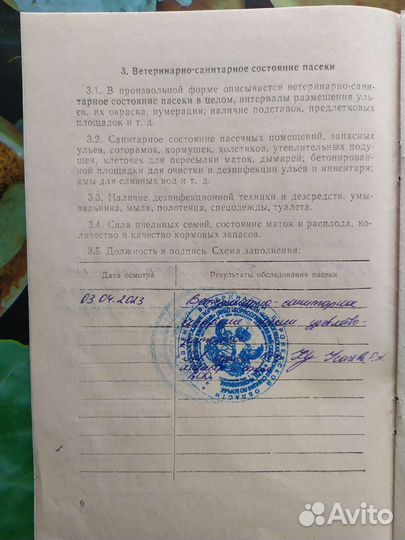 3. Ветеринарно-санитарное состояние пасеки
3.1. В произвольной форме описывается ветеринарно-сани-
тарное состояние пасеки в целом, интервалы размещения уль-
ев, их окраска, нумерации; наличие подставок, предлетковых
площадок и т. д.
3.2. Санитарное состояние пасечных помещений, запасных
ульев, соторамок, кормушек, холстиков, утеплительных поду-
шек, клеточек для пересылки маток, дымарей; бетонирован-
ной площадки для очистки и дезинфекции ульев и инвентаря;
ямы для сливных вод и т. д.
3.3. Наличие дезинфекционной техники и дезсредств, умы-
вальника, мыла, полотенца, спецодежды, туалета.
3.4. Сила пчелиных семей, состояние маток и расплода, ко-
личество и качество кормовых запасов.
3.5. Должность и подпись. Схема заполнения:
Дата осмотра Результаты обследования пасеки
03.04.2023 Ветеринарно-санитарное
6
Avito